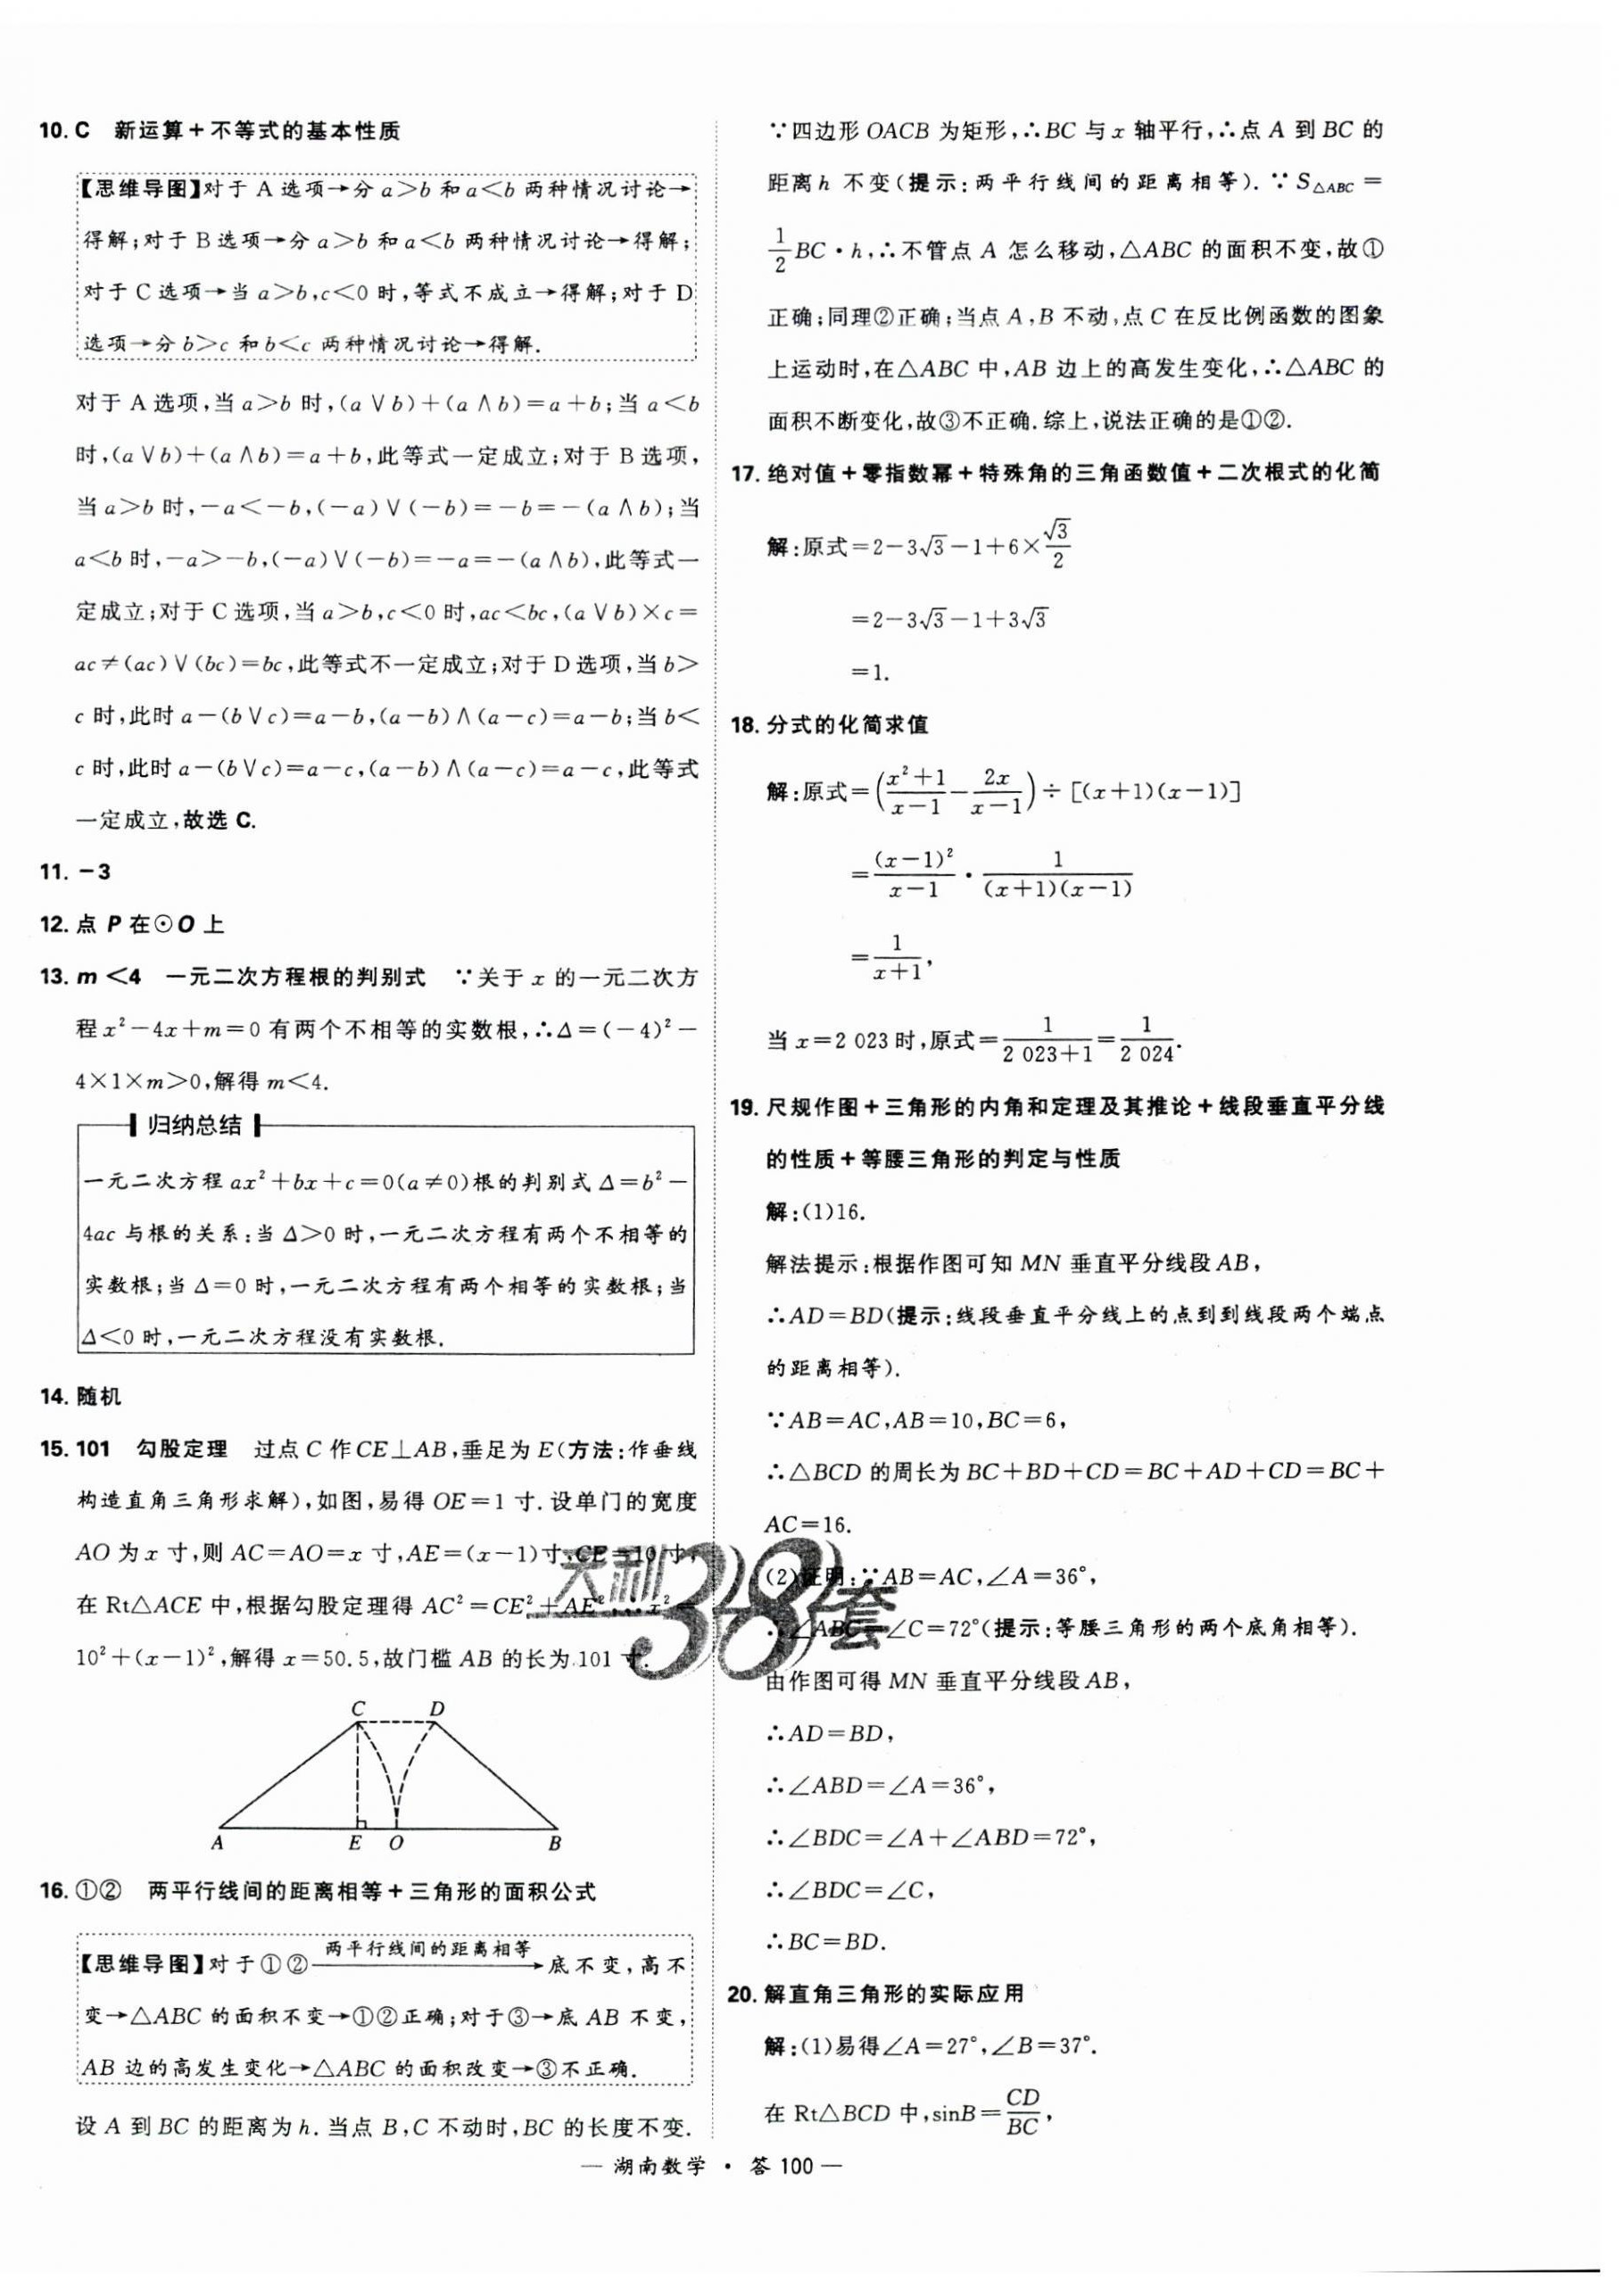 10. C　新运算＋不等式的基本性质
【思维导图】对于 A 选项→分 a＞b 和 a＜b 两种情况讨论→
得解；对于 B 选项→分 a＞b 和 a＜b 两种情况讨论→得解；
对于 C 选项→当 a＞b，c＜0 时，等式不成立→得解；对于 D
选项→分 b＞c 和 b＜c 两种情况讨论→得解.
对于 A 选项，当 a＞b 时，(a∨b)＋(a∧b)＝a＋b；当 a＜b
时，(a∨b)＋(a∧b)＝a＋b，此等式一定成立；对于 B 选项，
当 a＞b 时，－a＜－b，(－a)∨(－b)＝－b＝－(a∧b)；当
a＜b 时，－a＞－b，(－a)∨(－b)＝－a＝－(a∧b)，此等式一
定成立；对于 C 选项，当 a＞b，c＜0 时，ac＜bc，(a∨b)×c＝
ac≠(ac)∨(bc)＝bc，此等式不一定成立；对于 D 选项，当 b＞
c 时，此时 a－(b∨c)＝a－b，(a－b)∧(a－c)＝a－b；当 b＜
c 时，此时 a－(b∨c)＝a－c，(a－b)∧(a－c)＝a－c，此等式
一定成立，故选 C.
11. －3
12. 点 P 在⊙O 上
13. m＜4　一元二次方程根的判别式　∵关于 x 的一元二次方
程 x²－4x＋m＝0 有两个不相等的实数根，∴Δ＝(－4)²－
4×1×m＞0，解得 m＜4.
归纳总结
一元二次方程 ax²＋bx＋c＝0(a≠0)根的判别式 Δ＝b²－
4ac 与根的关系：当 Δ＞0 时，一元二次方程有两个不相等的
实数根；当 Δ＝0 时，一元二次方程有两个相等的实数根；当
Δ＜0 时，一元二次方程没有实数根.
14. 随机
15. 101　勾股定理　过点 C 作 CE⊥AB，垂足为 E(方法：作垂线
构造直角三角形求解)，如图，易得 OE＝1 寸. 设单门的宽度
AO 为 x 寸，则 AC＝AO＝x 寸，AE＝(x－1)寸，CE＝10 寸，
在 Rt△ACE 中，根据勾股定理得 AC²＝CE²＋AE²，∴x²＝
10²＋(x－1)²，解得 x＝50.5，故门槛 AB 的长为 101 寸.
C D
A E O B
16. ①②　两平行线间的距离相等＋三角形的面积公式
两平行线间的距离相等
【思维导图】对于①②→底不变，高不
变→△ABC 的面积不变→①②正确；对于③→底 AB 不变，
AB 边的高发生变化→△ABC 的面积改变→③不正确.
设 A 到 BC 的距离为 h. 当点 B，C 不动时，BC 的长度不变.
∵四边形 OACB 为矩形，∴BC 与 x 轴平行，∴点 A 到 BC 的
距离 h 不变(提示：两平行线间的距离相等). ∵S△ABC＝
1/2 BC·h，∴不管点 A 怎么移动，△ABC 的面积不变，故①
正确；同理②正确；当点 A，B 不动，点 C 在反比例函数的图象
上运动时，在△ABC 中，AB 边上的高发生变化，∴△ABC 的
面积不断变化，故③不正确. 综上，说法正确的是①②.
17. 绝对值＋零指数幂＋特殊角的三角函数值＋二次根式的化简
解：原式＝2－3√3－1＋6×√3/2
＝2－3√3－1＋3√3
＝1.
18. 分式的化简求值
解：原式＝((x²＋1)/(x－1)－2x/(x－1))÷[(x＋1)(x－1)]
＝(x－1)²/(x－1)·1/((x＋1)(x－1))
＝1/(x＋1)，
当 x＝2 023 时，原式＝1/(2 023＋1)＝1/2 024.
19. 尺规作图＋三角形的内角和定理及其推论＋线段垂直平分线
的性质＋等腰三角形的判定与性质
解：(1)16.
解法提示：根据作图可知 MN 垂直平分线段 AB，
∴AD＝BD(提示：线段垂直平分线上的点到到线段两个端点
的距离相等).
∵AB＝AC，AB＝10，BC＝6，
∴△BCD 的周长为 BC＋BD＋CD＝BC＋AD＋CD＝BC＋
AC＝16.
(2)证明：∵AB＝AC，∠A＝36°，
∴∠ABC＝∠C＝72°(提示：等腰三角形的两个底角相等).
由作图可得 MN 垂直平分线段 AB，
∴AD＝BD，
∴∠ABD＝∠A＝36°，
∴∠BDC＝∠A＋∠ABD＝72°，
∴∠BDC＝∠C，
∴BC＝BD.
20. 解直角三角形的实际应用
解：(1)易得∠A＝27°，∠B＝37°.
在 Rt△BCD 中，sinB＝CD/BC，
天利38套
— 湖南数学 · 答 100 —